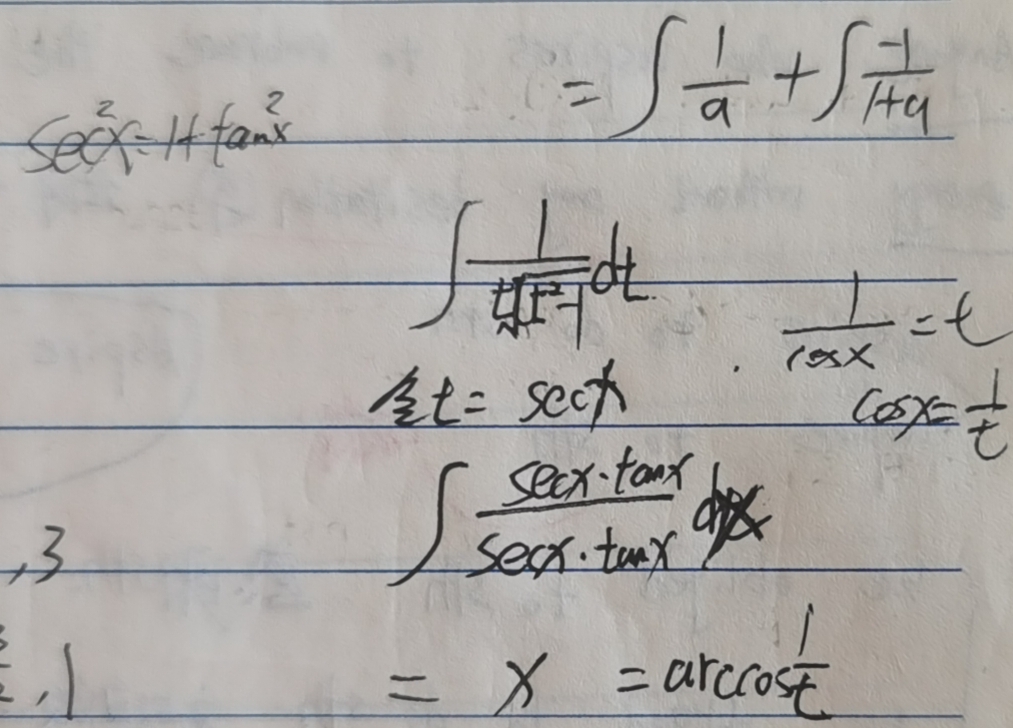 = ∫ 1/a + ∫ -1/(1+a)
sec²x = 1+tan²x
∫ 1/(t√(t²-1)) dt
1/cosx = t
令t = secx
cosx = 1/t
∫ (secx·tanx)/(secx·tanx) dx
,3
,1
= x = arccos 1/t